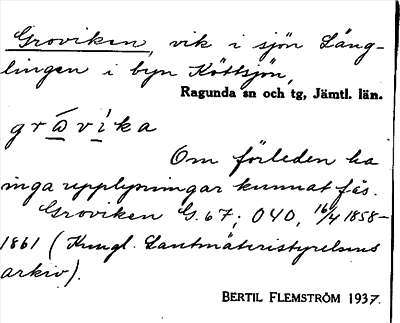 Groviken, vik i sjön Läng-
lingen i byn Köttsjön,
Ragunda sn och tg, Jämtl. län.
grὼvíka
Om förleden ha
inga upplysningar kunnat fås.
Groviken G. 67; 040, 16/4 1858-
1861 (Kungl. Lantmäteristyrelsens
arkiv).
BERTIL FLEMSTRÖM 1937.